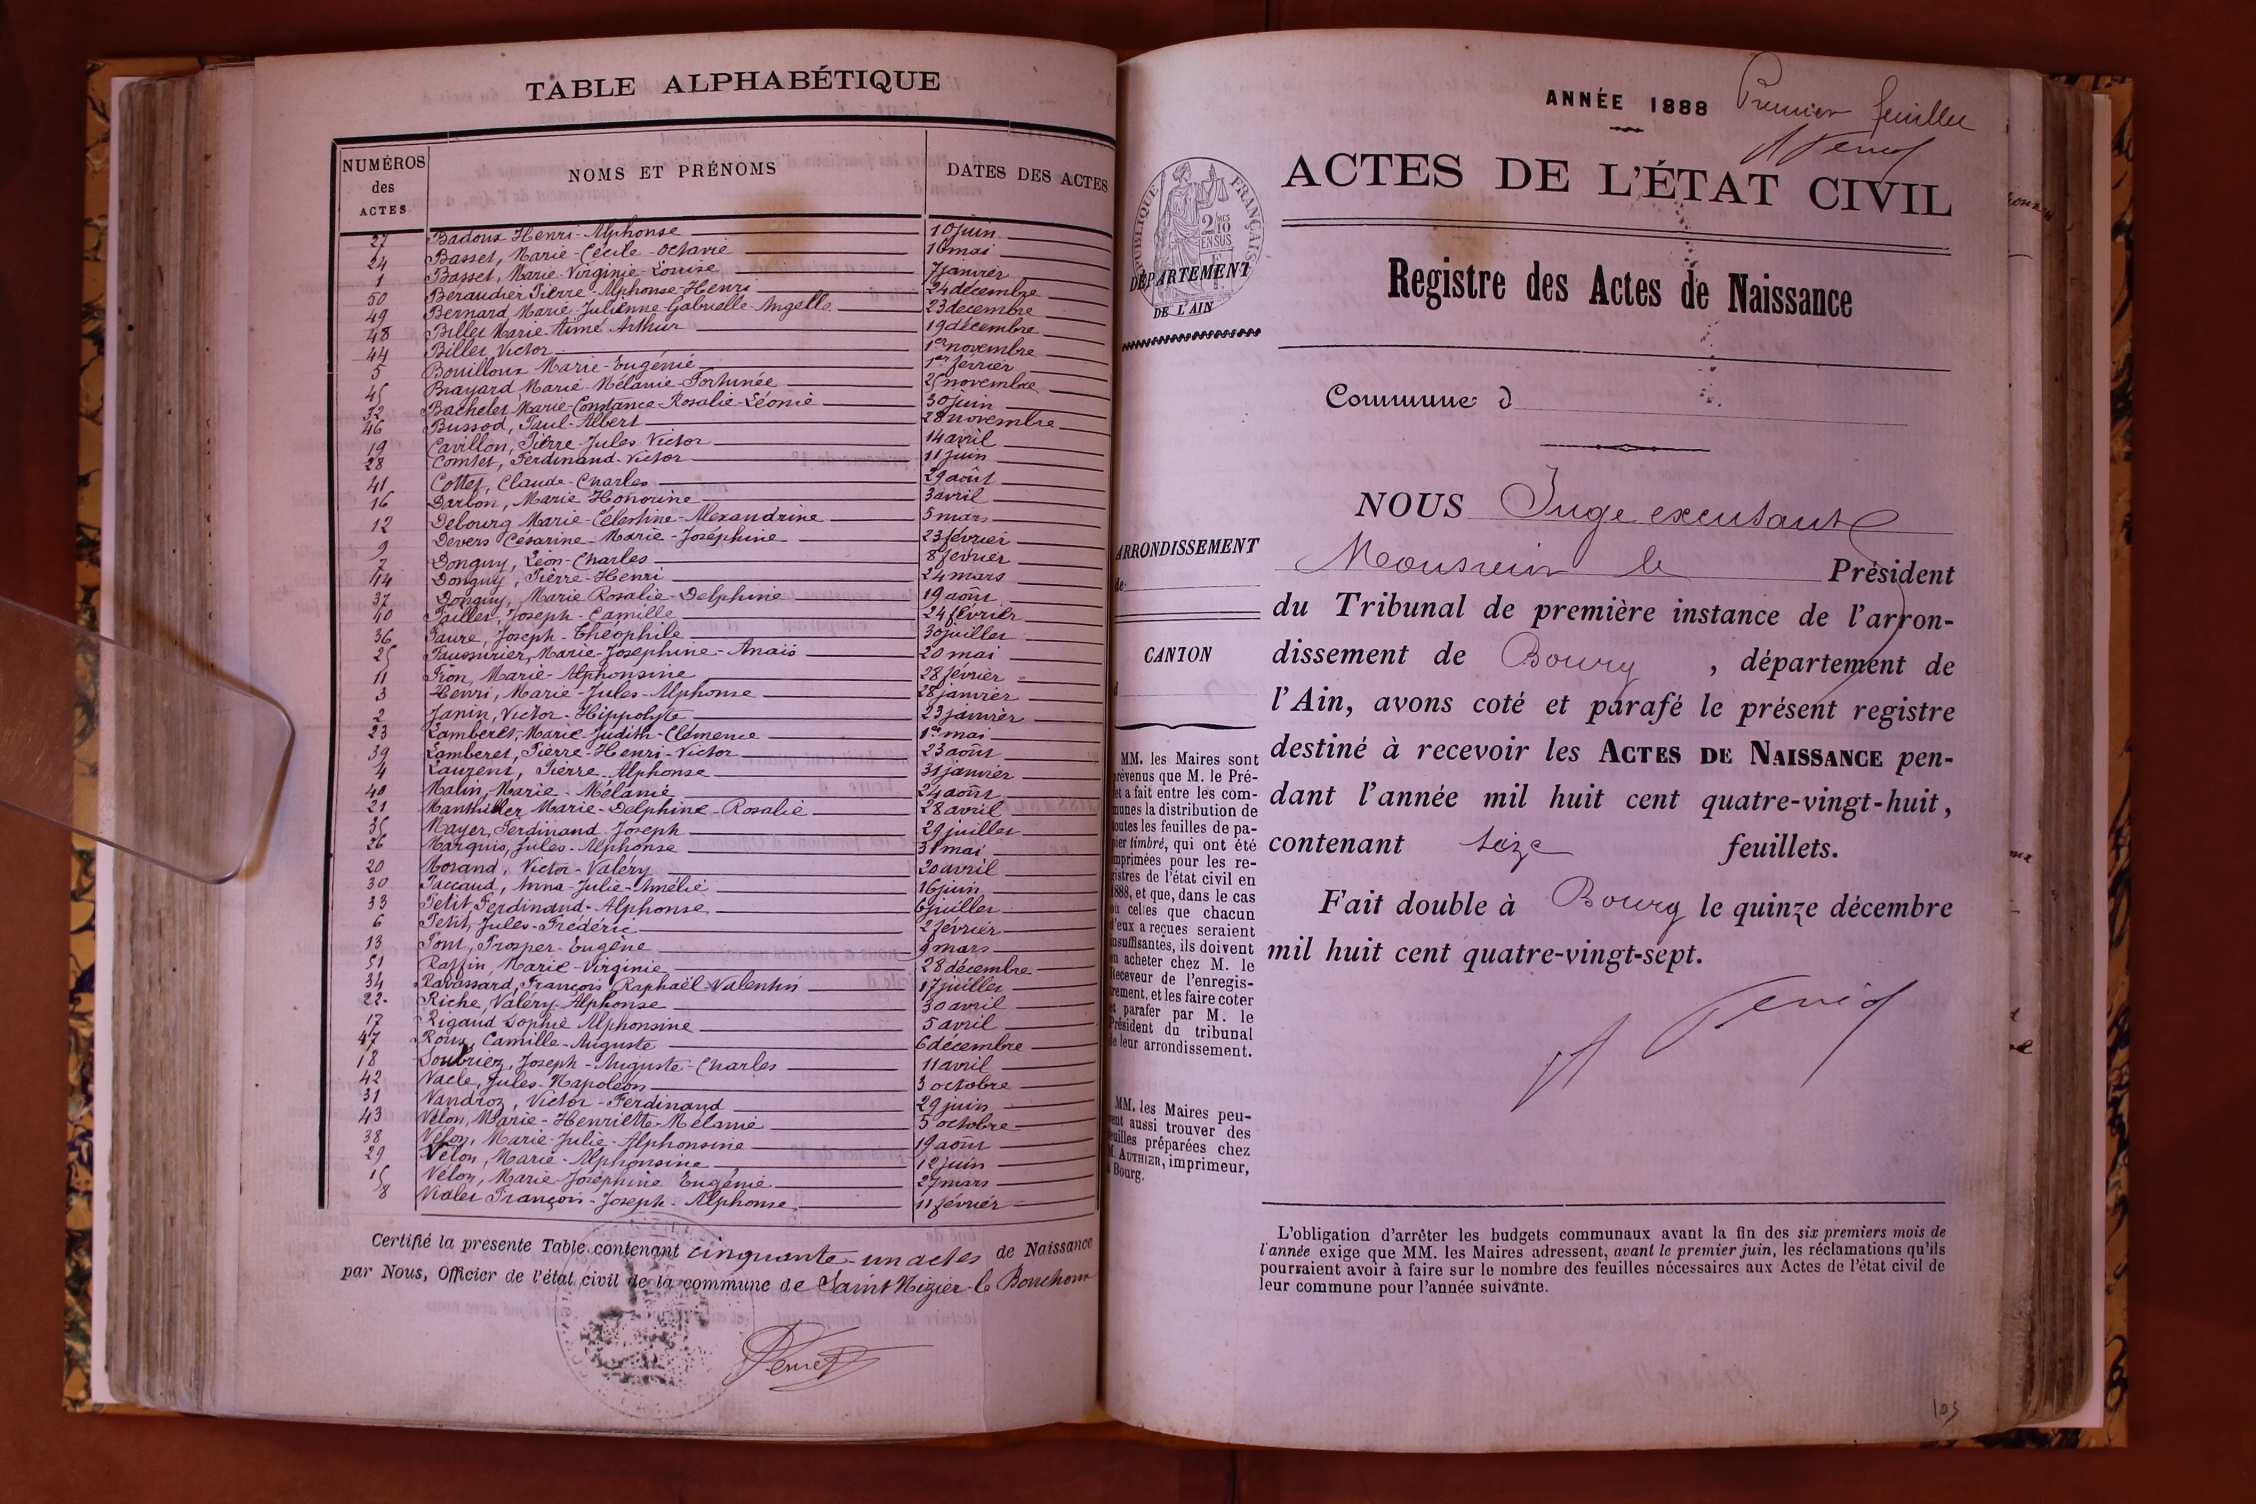 TABLE ALPHABÉTIQUE
NUMÉROS des ACTES NOMS ET PRÉNOMS DATES DES ACTES
27 Badoux Henri-Alphonse 10 juin
24 Basset, Marie-Cécile-Octavie 10 mai
1 Basset, Marie-Virginie-Louise 7 janvier
50 Beraudier Pierre-Alphonse-Henri 24 décembre
49 Bernard, Marie-Julienne-Gabrielle-Angelle 23 décembre
48 Billet Marie-Aimé Arthur 19 décembre
44 Billet Victor 1er novembre
5 Bouilloux Marie-Eugénie 1er février
45 Brayard, Marie-Mélanie-Fortunée 25 novembre
32 Bachelet, Marie-Constance-Rosalie-Léonie 30 juin
46 Bussod, Paul-Albert 28 novembre
19 Cavillon, Pierre-Jules Victor 14 avril
28 Comtet, Ferdinand-Victor 11 juin
41 Cottet, Claude-Charles 29 août
16 Darbon, Marie Honorine 3 avril
12 Debourg Marie-Célestine-Alexandrine 5 mars
9 Devers Césarine-Marie-Joséphine 23 février
7 Donguy, Léon-Charles 8 février
14 Donguy, Pierre-Henri 24 mars
37 Donguy, Marie Rosalie-Delphine 19 août
10 Faillet, Joseph-Camille 24 février
36 Faure, Joseph-Théophile 30 juillet
25 Faussurier, Marie-Joséphine-Anaïs 20 mai
11 Fron, Marie-Alphonsine 28 février
3 Henri, Marie-Jules-Alphonse 28 janvier
2 Janin, Victor-Hippolyte 23 janvier
23 Lamberet, Marie Judith-Clémence 1er mai
39 Lamberet, Pierre-Henri-Victor 23 août
4 Laurent, Pierre-Alphonse 31 janvier
40 Malin, Marie-Mélanie 24 août
21 Manthiller Marie-Delphine-Rosalie 28 avril
35 Mayer, Ferdinand-Joseph 29 juillet
26 Marquis, Jules-Alphonse 31 mai
20 Morand, Victor-Valéry 20 avril
30 Paccaud, Anna-Julie-Amélie 16 juin
33 Petit Ferdinand-Alphonse 6 juillet
6 Petit, Jules-Frédéric 2 février
13 Pont, Prosper-Eugène 9 mars
51 Raffin, Marie-Virginie 28 décembre
34 Ravassard, François Raphaël-Valentin 17 juillet
22 Riche, Valéry Alphonse 30 avril
17 Rigaud Sophie Alphonsine 5 avril
47 Roux, Camille-Auguste 6 décembre
18 Soubriez, Joseph-Auguste-Charles 11 avril
42 Vacle, Jules-Napoléon 3 octobre
31 Vandroz, Victor-Ferdinand 29 juin
43 Vélon, Marie-Henriette-Mélanie 5 octobre
38 Vélon, Marie-Julie-Alphonsine 19 août
29 Vélon, Marie-Alphonsine 12 juin
15 Vélon, Marie-Joséphine Eugénie 27 mars
8 Violet François-Joseph-Alphonse 11 février
Certifié la présente Table contenant cinquante-un actes de Naissance
par Nous, Officier de l'état civil de la commune de Saint Nizier-le Bouchoux
ANNÉE 1888 Premier feuillet
ACTES DE L'ÉTAT CIVIL
RÉPUBLIQUE FRANÇAISE
2 10 MES
EN SUS
DÉPARTEMENT
DE L'AIN
Registre des Actes de Naissance
Commune d
NOUS Juge excusant
Monsieur le Président
du Tribunal de première instance de l'arron-
dissement de Bourg, département de
l'Ain, avons coté et parafé le présent registre
destiné à recevoir les ACTES DE NAISSANCE pen-
dant l'année mil huit cent quatre-vingt-huit,
contenant seize feuillets.
Fait double à Bourg le quinze décembre
mil huit cent quatre-vingt-sept.
ARRONDISSEMENT
de
CANTON
d
MM. les Maires sont
prévenus que M. le Pré-
fet a fait entre les com-
munes la distribution de
toutes les feuilles de pa-
pier timbré, qui ont été
imprimées pour les re-
gistres de l'état civil en
1888, et que, dans le cas
où celles que chacun
d'eux a reçues seraient
insuffisantes, ils doivent
en acheter chez M. le
Receveur de l'enregis-
trement, et les faire coter
et parafer par M. le
Président du tribunal
de leur arrondissement.
MM. les Maires peu-
vent aussi trouver des
feuilles préparées chez
M. AUTHIER, imprimeur,
à Bourg.
L'obligation d'arrêter les budgets communaux avant la fin des six premiers mois de
l'année exige que MM. les Maires adressent, avant le premier juin, les réclamations qu'ils
pourraient avoir à faire sur le nombre des feuilles nécessaires aux Actes de l'état civil de
leur commune pour l'année suivante.
103